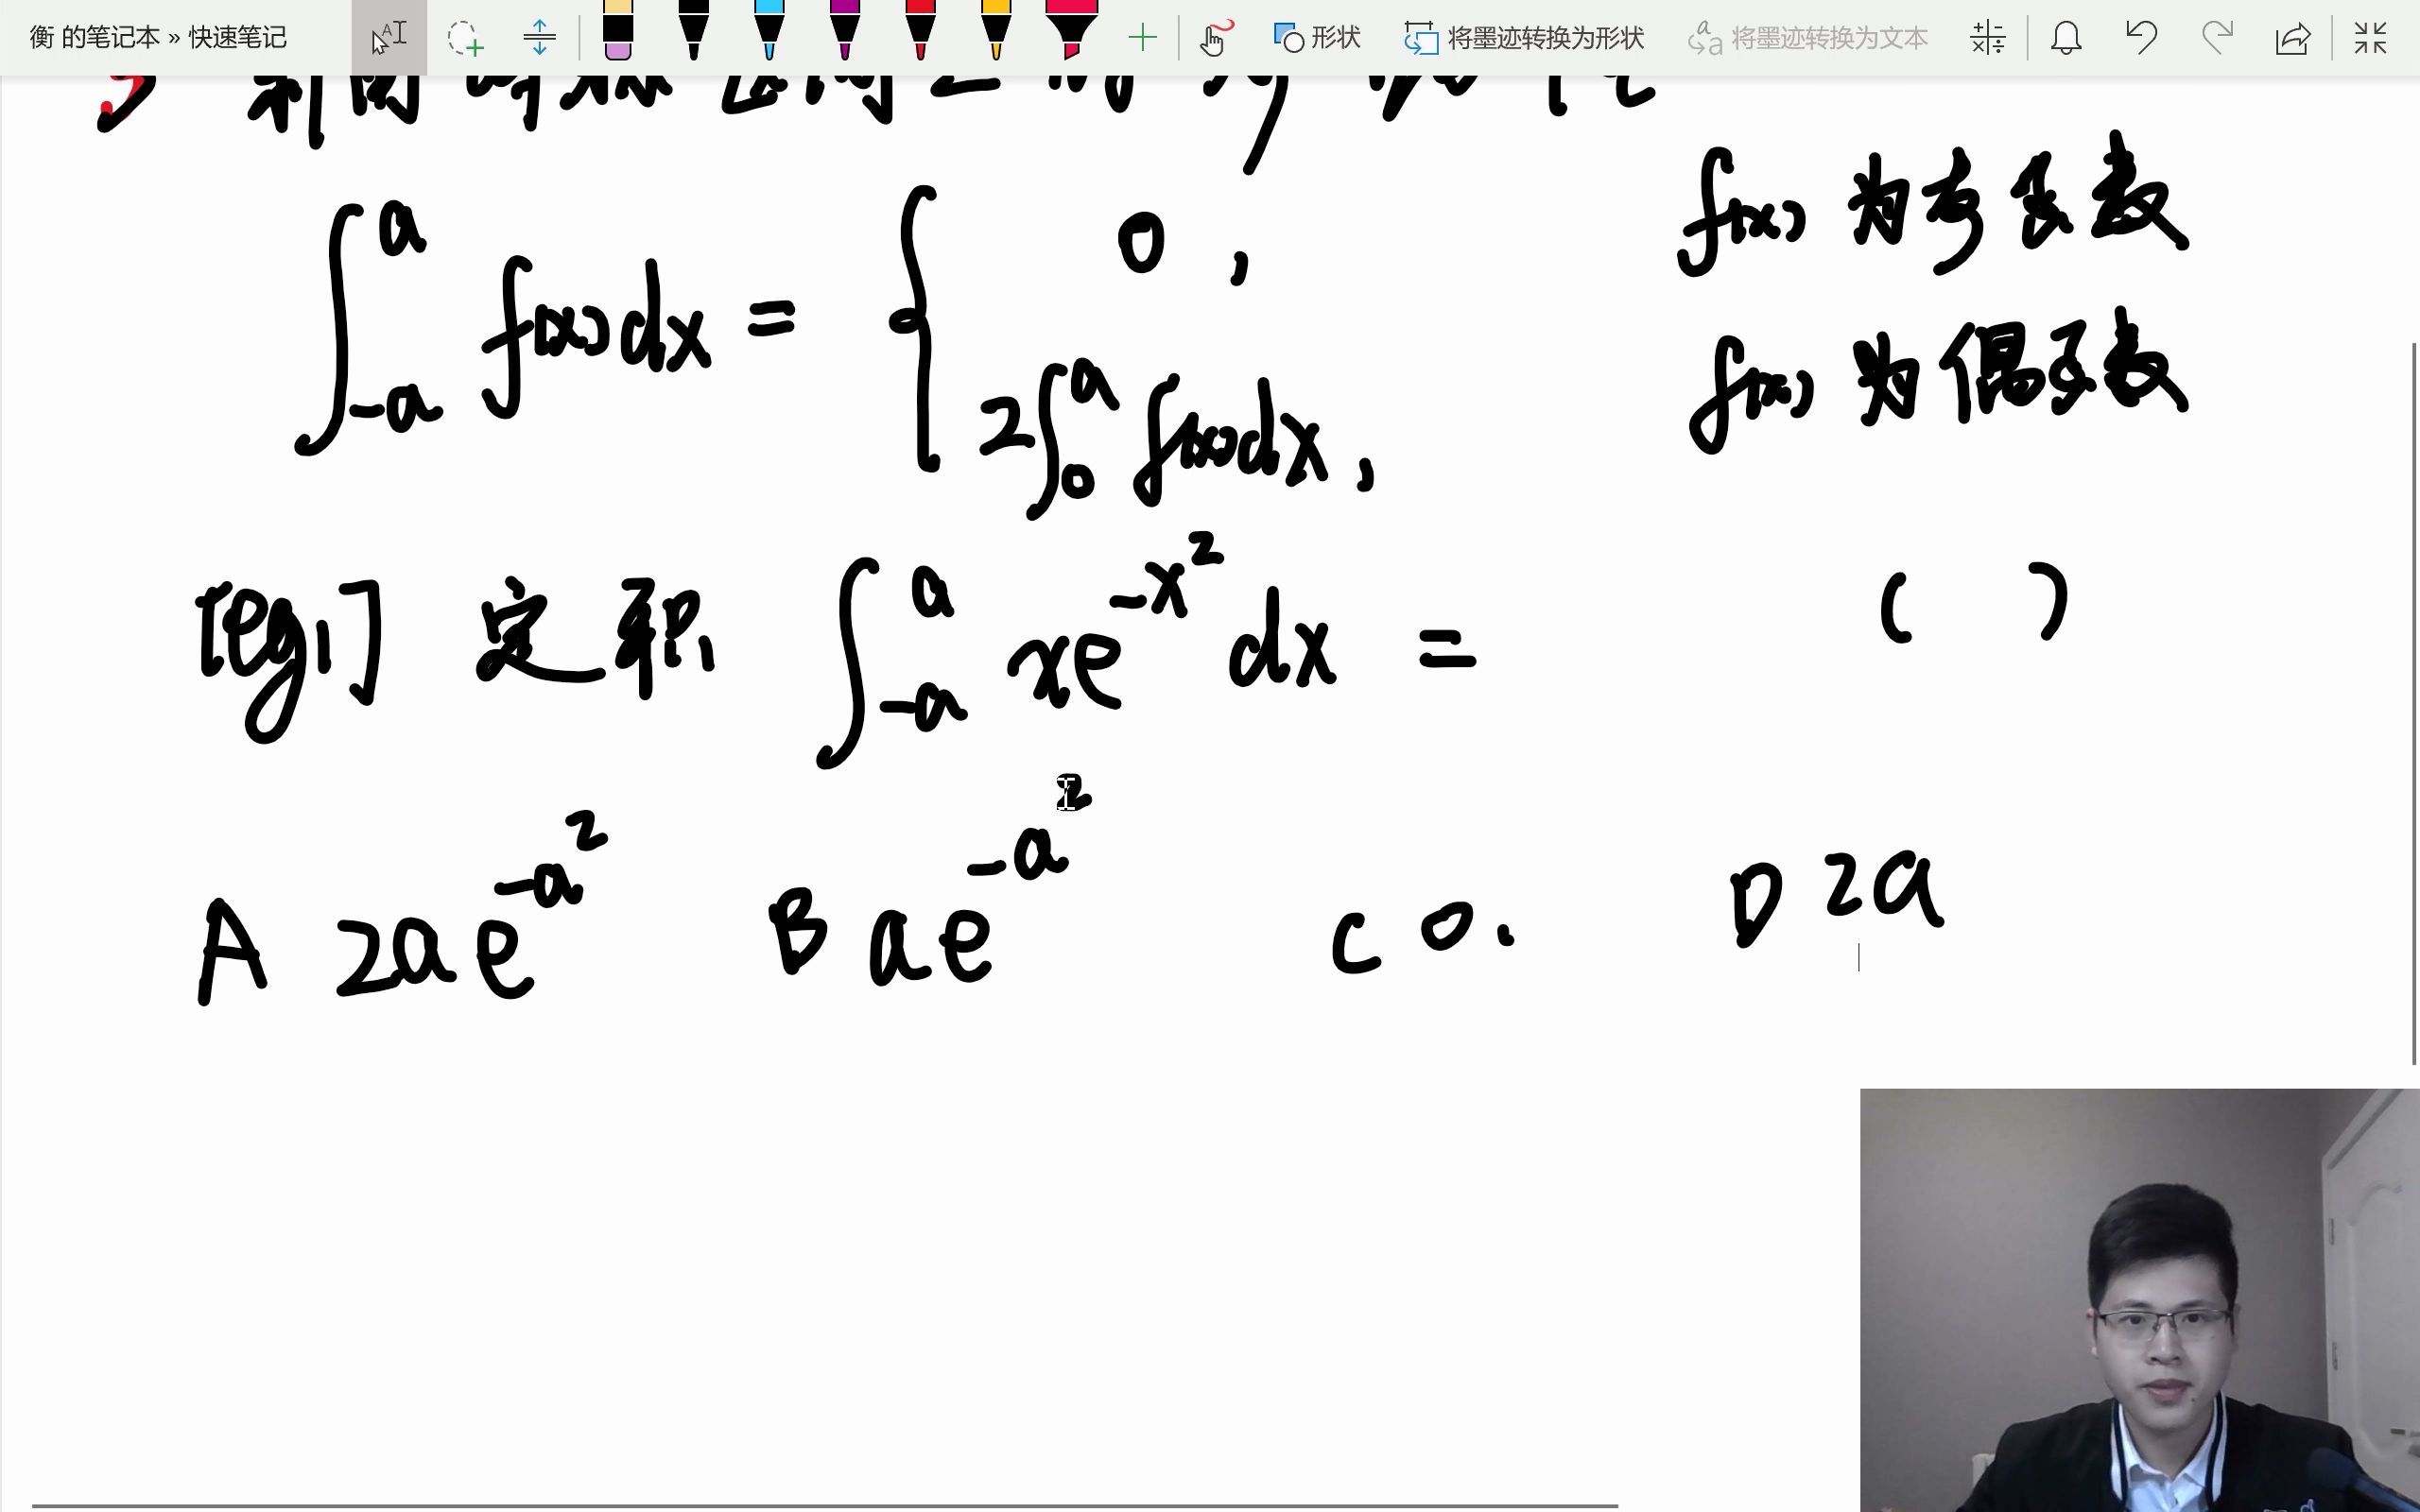 衡 的笔记本 » 快速笔记 形状 将墨迹转换为形状 将墨迹转换为文本
∫_{-a}^{a} f(x)dx = { 0 , f(x) 为奇函数
2∫_{0}^{a} f(x)dx , f(x) 为偶函数
[eg1] 定积 ∫_{-a}^{a} xe^{-x^2} dx = ( )
A 2ae^{-a^2} B ae^{-a^2} C 0. D 2a